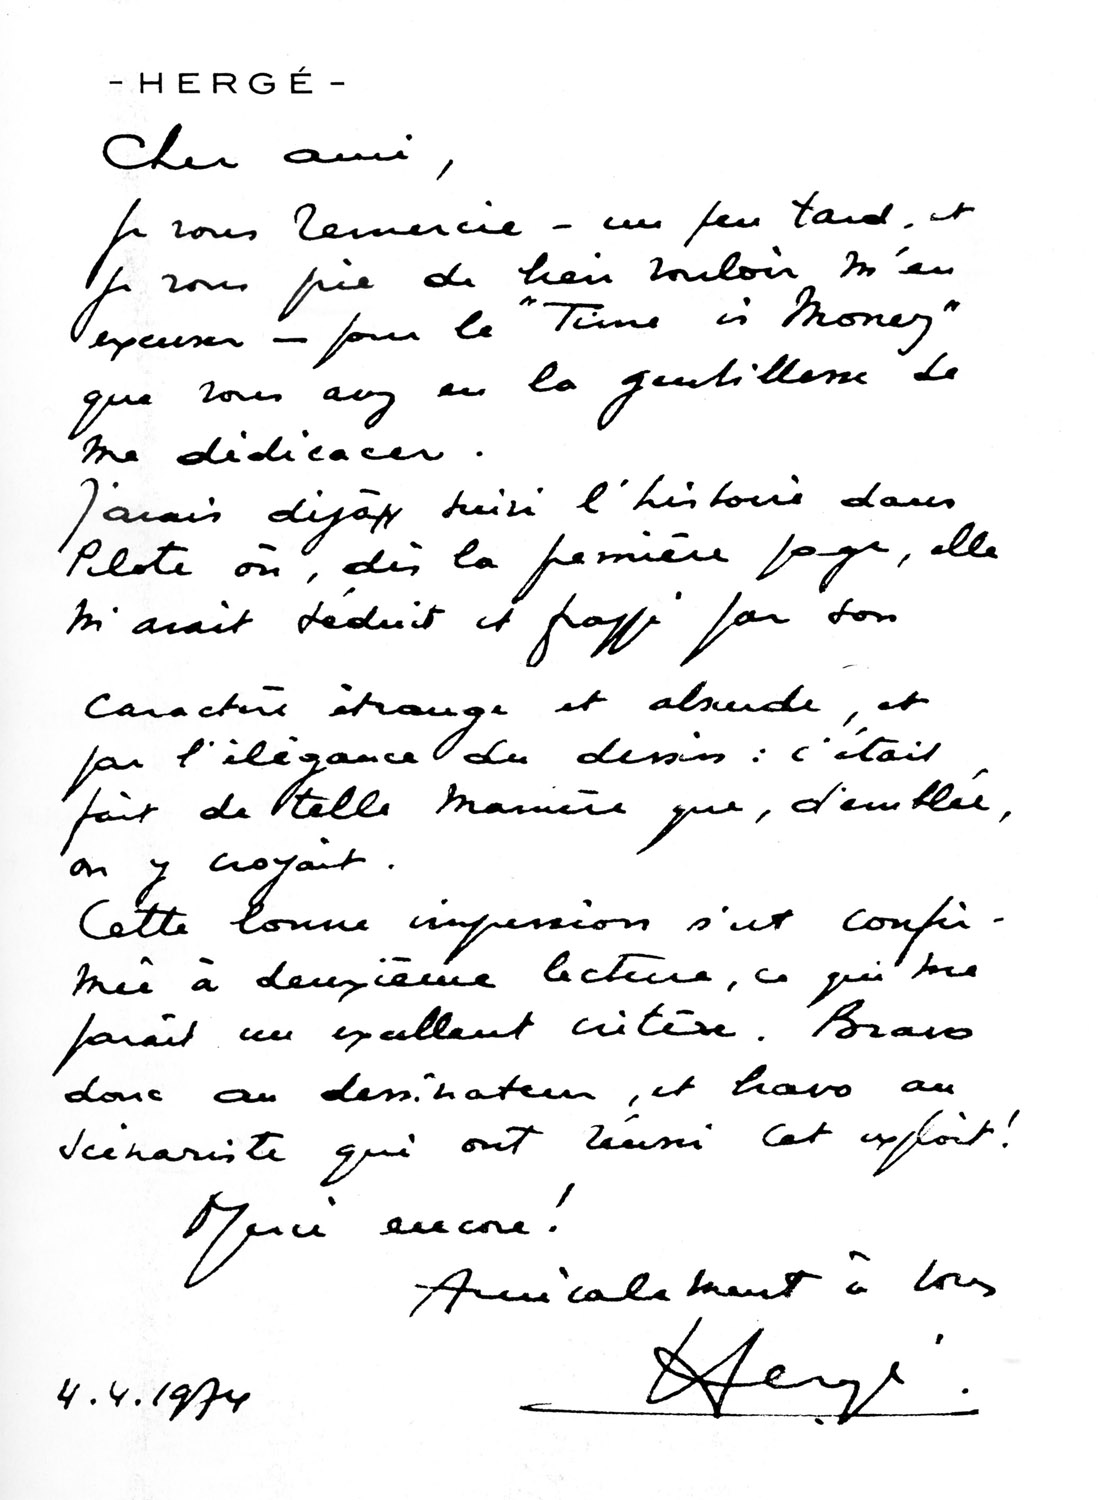 - HERGÉ -
Cher ami,
je vous remercie - un peu tard, et
je vous prie de bien vouloir m'en
excuser - pour le "Time is Money"
que vous avez eu la gentillesse de
me dédicacer.
J'avais déjà suivi l'histoire dans
Pilote où, dès la première page, elle
m'avait séduit et frappé par son
caractère étrange et absurde, et
par l'élégance du dessin : c'était
fait de telle manière que, d'emblée,
on y croyait.
Cette bonne impression s'est confir-
mée à deuxième lecture, ce qui me
paraît un excellent critère. Bravo
donc au dessinateur, et bravo au
scénariste qui ont réussi cet exploit!
Merci encore!
Amicalement à vous
Hergé.
4.4.1974